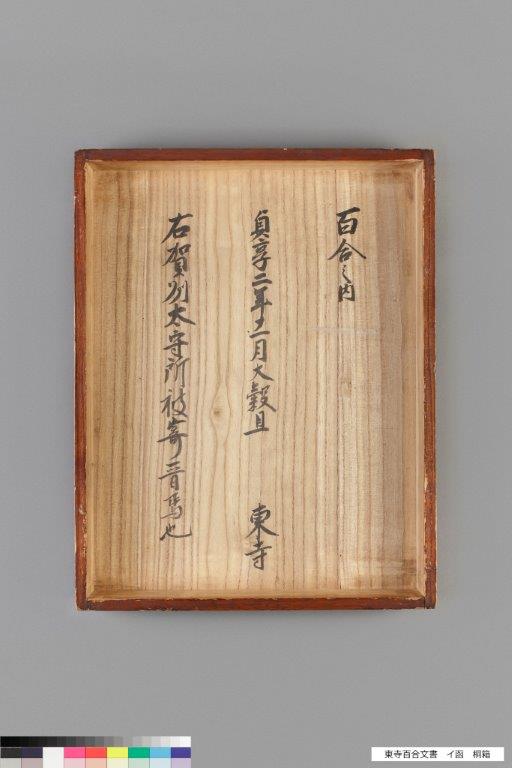 百合之内
貞享二年十一月大穀旦　東寺
右賀州太守所被寄晋焉也
東寺百合文書　イ函　桐箱